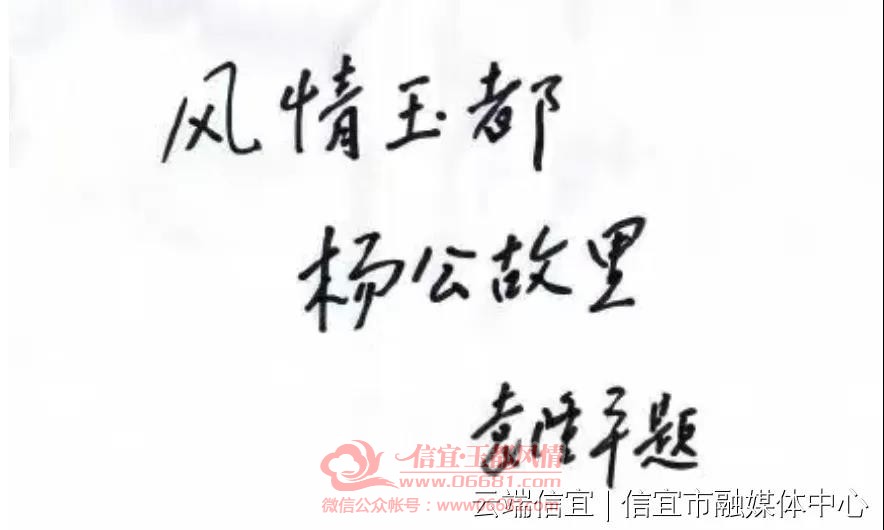 风情玉都
杨公故里
袁隆平题
信宜·玉都风情
www.06681.com
微信公众帐号：www06681com
云端信宜 | 信宜市融媒体中心